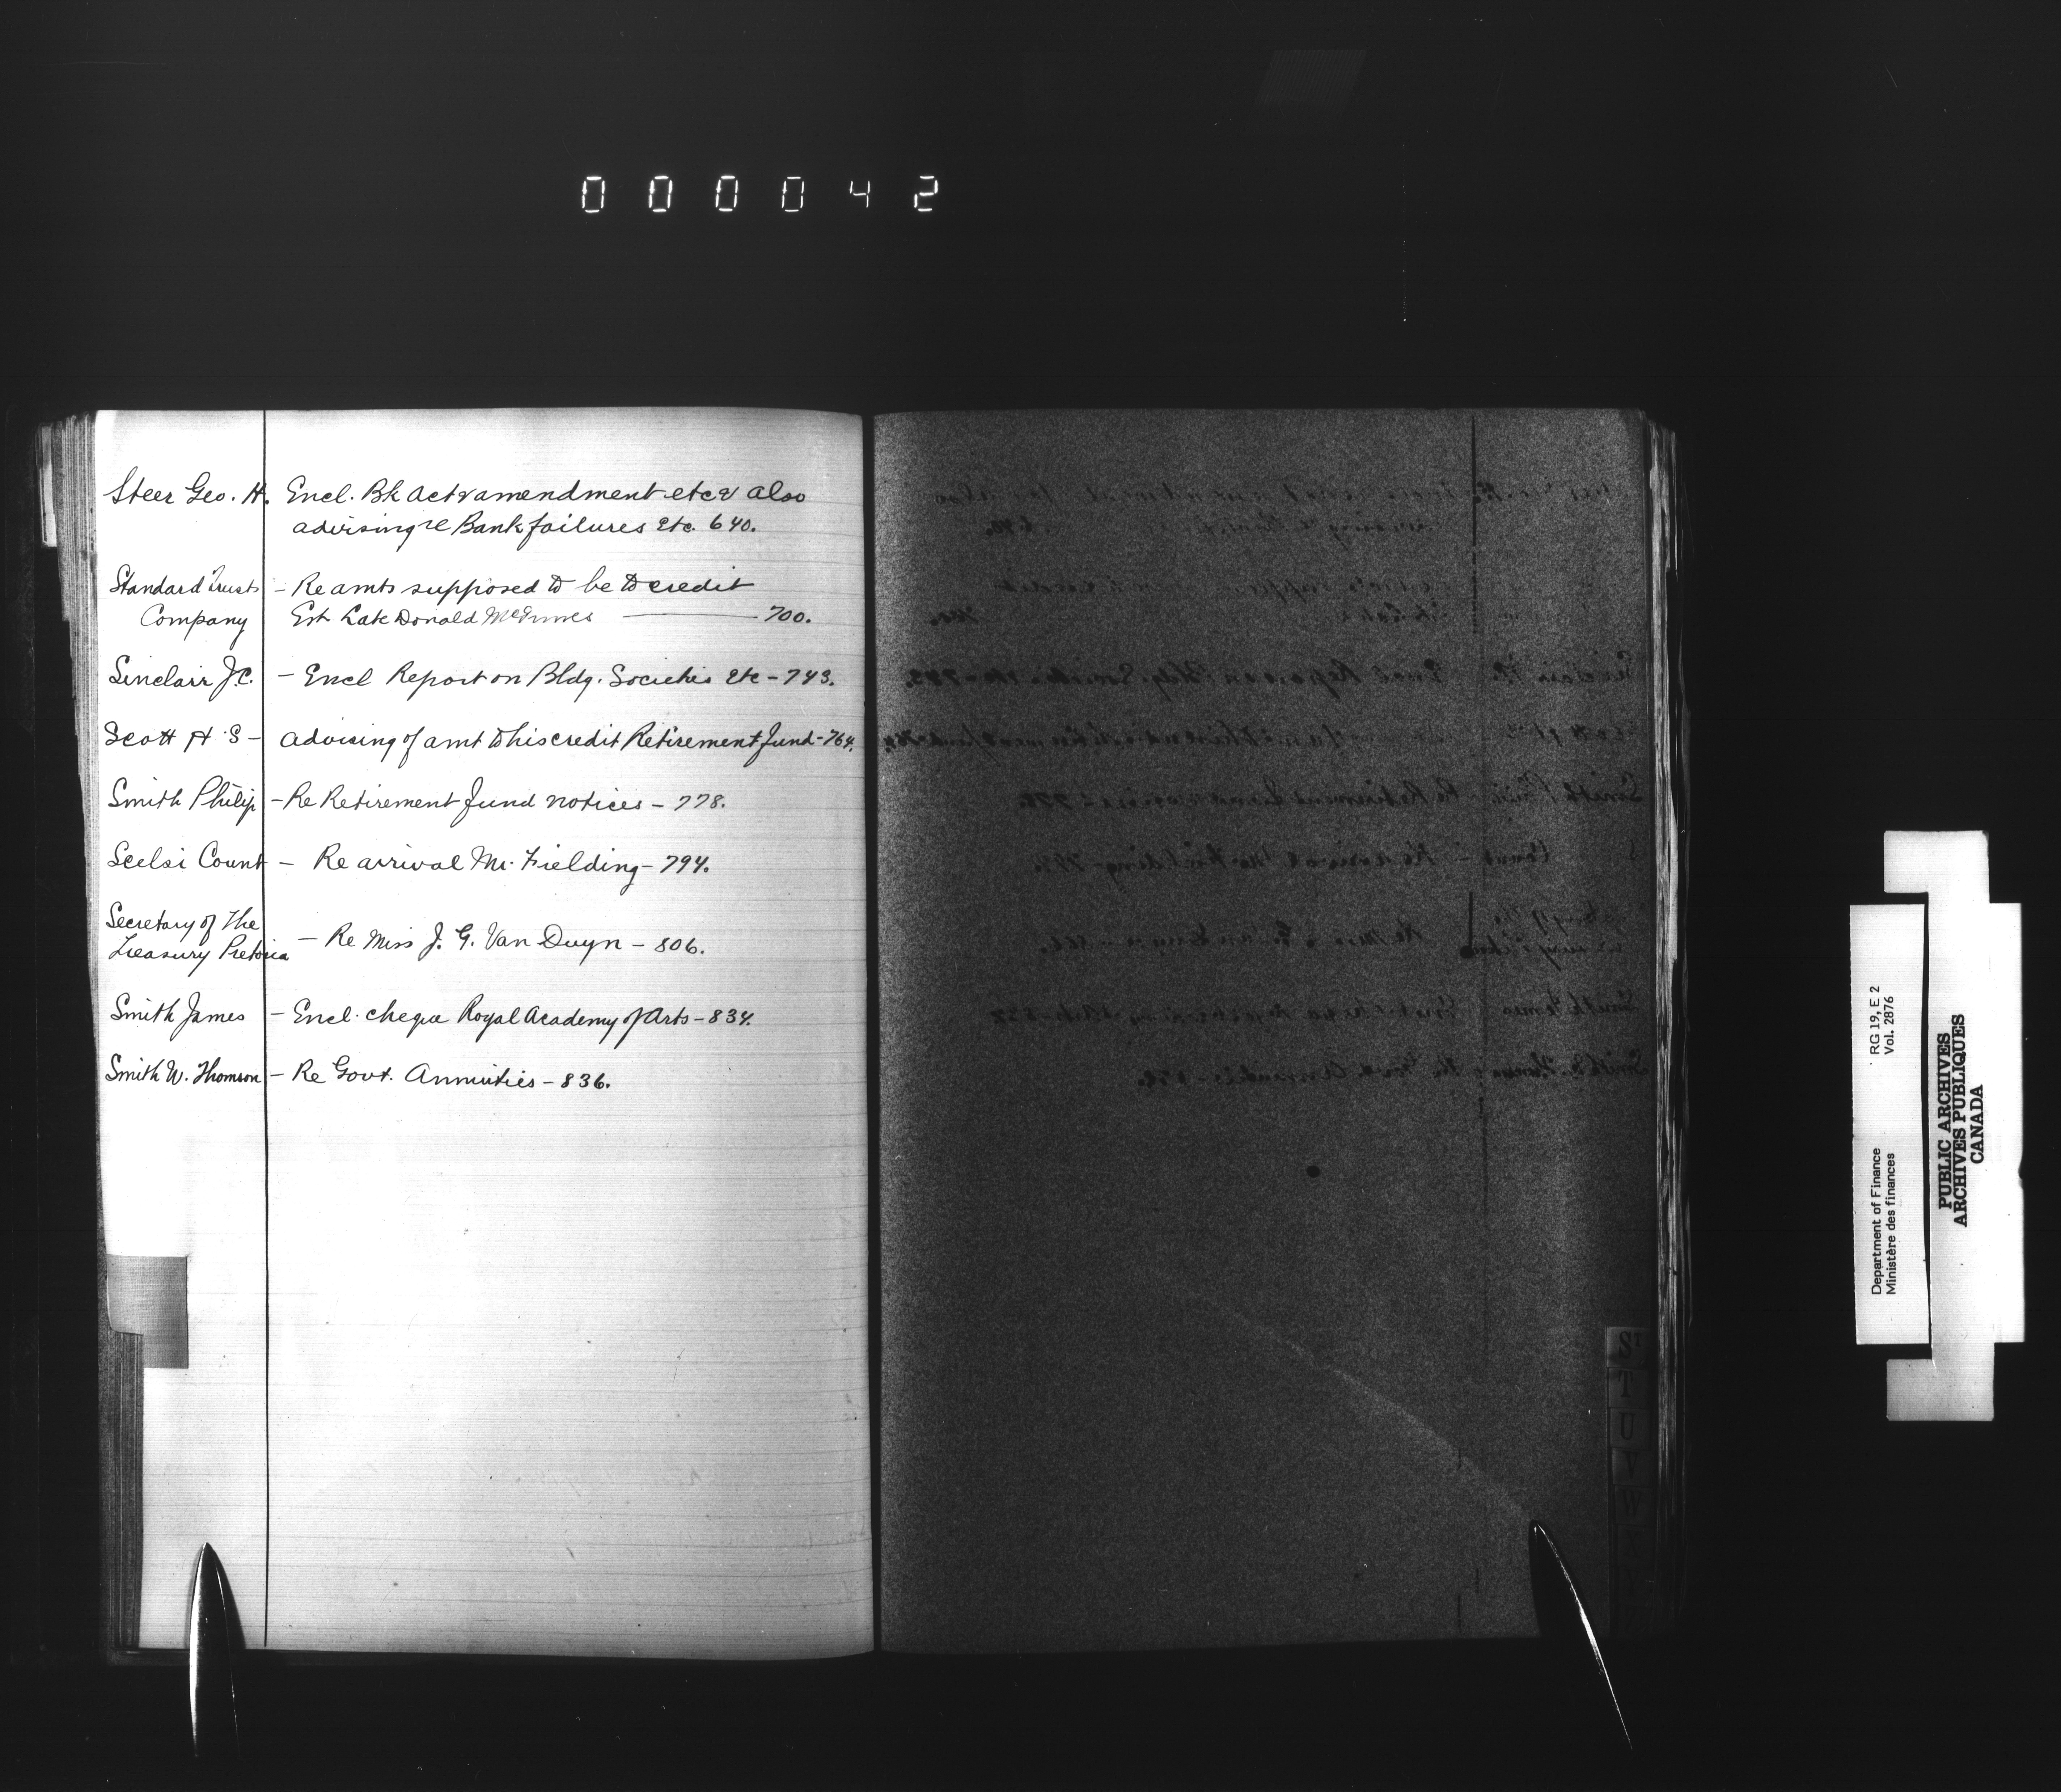 000042
Steer Geo. H. Encl. Bk Act & amendment etc & also
advising re Bank failures etc. 640.
Standard Trusts - Re amts supposed to be to credit
Company Est Late Donald McInnes — 700.
Sinclair J.C. - Encl Report on Bldg. Societies etc - 743.
Scott H S - advising of amt to his credit Retirement Fund - 764.
Smith Philip - Re Retirement Fund notices - 778.
Scelsi Count - Re arrival Mr. Fielding - 794.
Secretary of the
Treasury Pretoria - Re Miss J. G. Van Duyn - 806.
Smith James - Encl. cheque Royal Academy of Arts - 834.
Smith W. Thomson - Re Govt. Annuities - 836.
S
T
U
V
W
RG 19, E 2
Vol. 2876
Department of Finance
Ministère des finances
PUBLIC ARCHIVES
ARCHIVES PUBLIQUES
CANADA